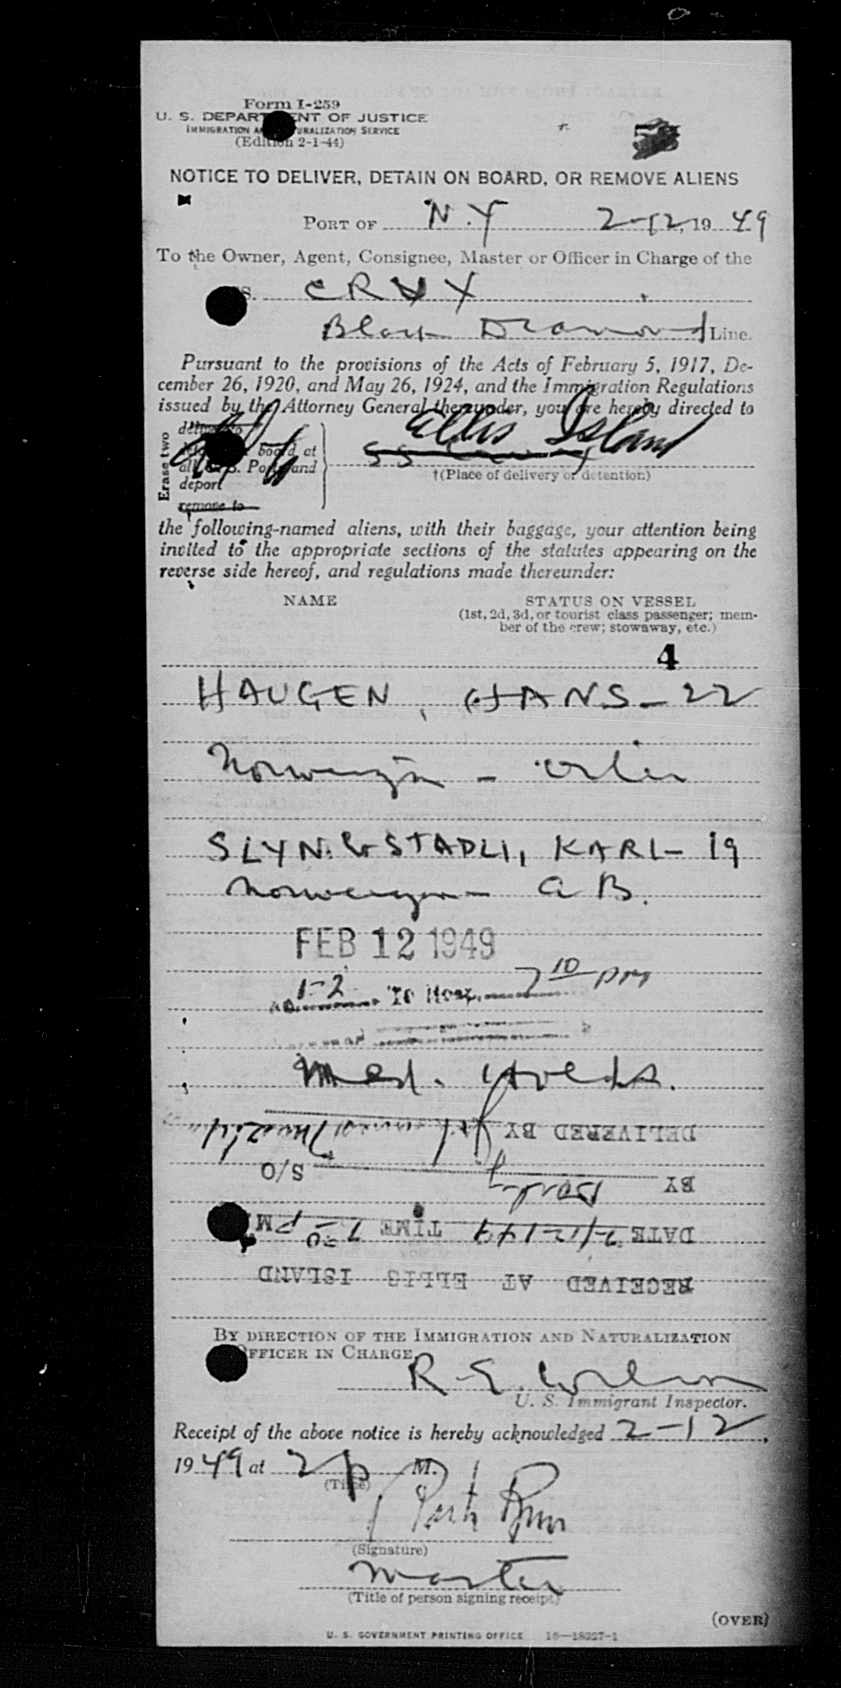 Form I-259
U. S. DEPARTMENT OF JUSTICE
IMMIGRATION AND NATURALIZATION SERVICE
(Edition 2-1-44)
NOTICE TO DELIVER, DETAIN ON BOARD, OR REMOVE ALIENS
PORT OF N.Y 2-12, 1949
To the Owner, Agent, Consignee, Master or Officer in Charge of the
SS. CRUX
Black Diamond Line.
Pursuant to the provisions of the Acts of February 5, 1917, De-
cember 26, 1920, and May 26, 1924, and the Immigration Regulations
issued by the Attorney General thereunder, you are hereby directed to
Erase two
deliver to
board at
all U. S. Ports and
deport
remove to
Ellis Island
SS
†(Place of delivery or detention)
the following-named aliens, with their baggage, your attention being
invited to the appropriate sections of the statutes appearing on the
reverse side hereof, and regulations made thereunder:
NAME STATUS ON VESSEL
(1st, 2d, 3d, or tourist class passenger; mem-
ber of the crew; stowaway, etc.)
4
HAUGEN, HANS - 22
Norwegian - oiler
SLYNGSTADLI, KARL - 19
Norwegian - A B.
FEB 12 1949
1-2 To Hosp. 7 10 PM
Med. Holds.
DELIVERED BY
BY S/O
DATE 2/12/49 TIME 7 30 PM
RECEIVED AT ELLIS ISLAND
BY DIRECTION OF THE IMMIGRATION AND NATURALIZATION
OFFICER IN CHARGE
R. E. Wilson
U. S. Immigrant Inspector.
Receipt of the above notice is hereby acknowledged 2-12,
1949 at 2 p M.
(Title)
(Signature)
Master
(Title of person signing receipt)
(OVER)
U. S. GOVERNMENT PRINTING OFFICE 16—18227-1